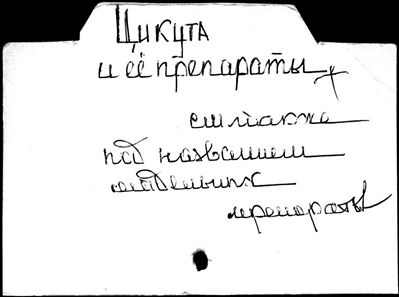 Цикута
и её препараты
см. также
под названием
отдельных
препараты